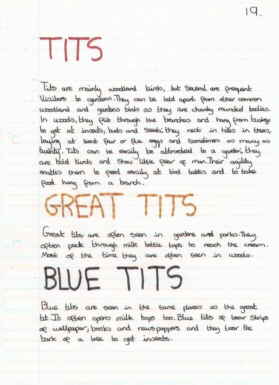 19.
TITS
Tits are mainly woodland birds, but several are frequent
visitors to gardens. They can be told apart from other common
woodland and garden birds as they are chunky rounded bodies.
In woods, they flit through the branches and hang from twigs
to get at insects, buds and seeds; they nest in holes in trees,
laying at least four or five eggs and sometimes as many as
twenty. Tits can be easily be attracted to a garden; they
are bold birds and show little fear of man. Their agility
enables them to feed easily at bird tables and to take
food hung from a branch.
GREAT TITS
Great tits are often seen in gardens and parks. They
often peck through milk bottle tops to reach the cream.
Most of the time they are often seen in woods.
BLUE TITS
Blue tits are seen in the same places as the great
tit. It often opens milk tops too. Blue tits of tear strips
of wallpaper, books and newspapers and they tear the
bark of a tree to get insects.